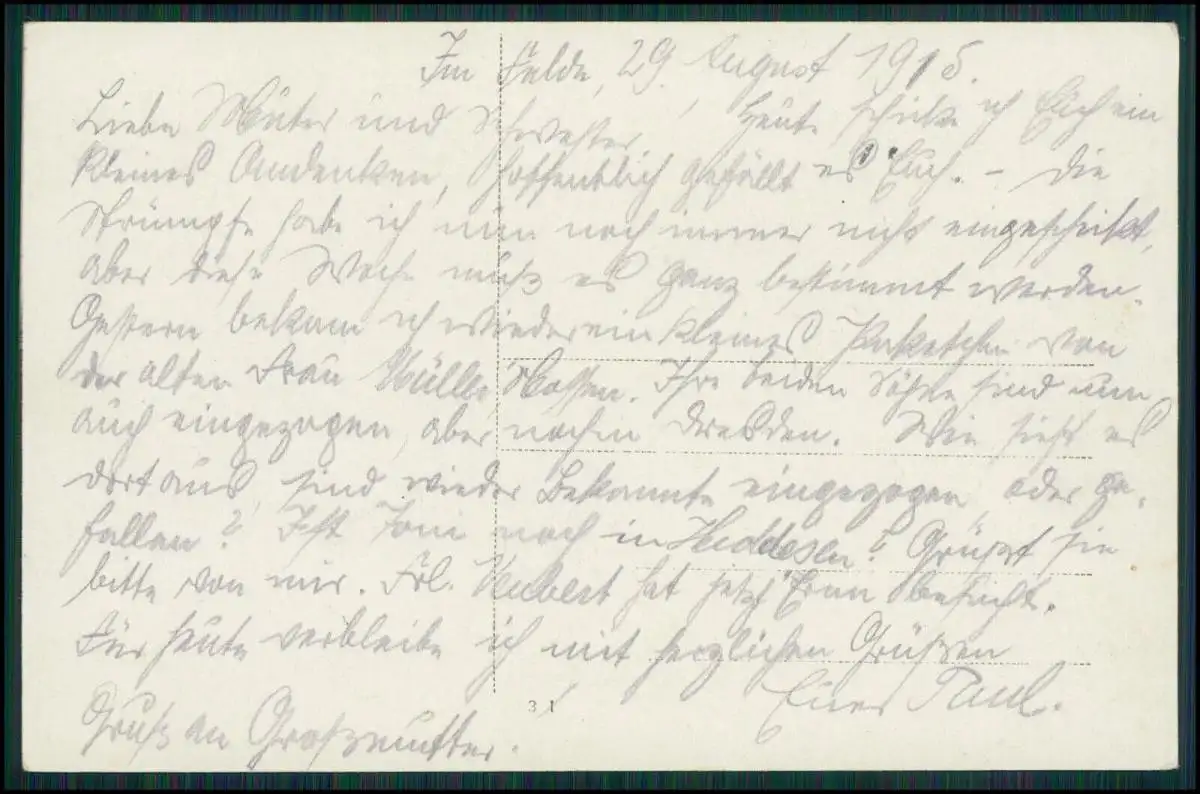 Im Felde, 29. August 1915.
Liebe Mutter und Schwester! Heute schicke ich Euch ein
kleines Andenken, hoffentlich gefällt es Euch. – Die
Strümpfe habe ich nun noch immer nicht eingeschickt,
aber diese Woche muß es ganz bestimmt werden.
Gestern bekam ich wieder ein kleines Paketchen von
der alten Frau Müller, Nossen. Ihre beiden Söhne sind nun
auch eingezogen, aber noch in Dresden. Wie sieht es
dort aus, sind wieder Bekannte eingezogen oder ge-
fallen? Ist Toni noch in Hiddesen? Grüßt sie
bitte von mir. Frl. Neubert hat jetzt besucht.
Für heute verbleibe ich mit herzlichen Grüßen
Euer Paul.
Gruß an Großmutter.
31